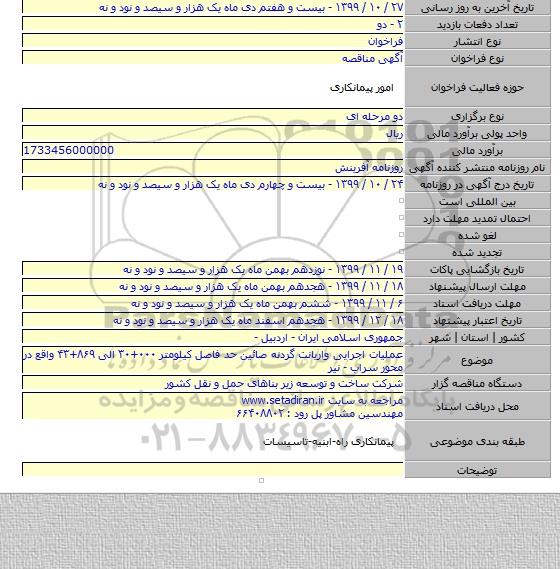 تاریخ آخرین به روز رسانی ۲۷ / ۱۰ / ۱۳۹۹ - بیست و هفتم دی ماه یک هزار و سیصد و نود و نه
تعداد دفعات بازدید ۲ - دو
نوع انتشار فراخوان
نوع فراخوان آگهی مناقصه
حوزه فعالیت فراخوان امور پیمانکاری
نوع برگزاری دو مرحله ای
واحد پولی برآورد مالی ریال
برآورد مالی 1733456000000
نام روزنامه منتشر کننده آگهی روزنامه آفرینش
تاریخ درج آگهی در روزنامه ۲۴ / ۱۰ / ۱۳۹۹ - بیست و چهارم دی ماه یک هزار و سیصد و نود و نه
بین المللی است
احتمال تمدید مهلت دارد
لغو شده
تجدید شده
تاریخ بازگشایی پاکات ۱۹ / ۱۱ / ۱۳۹۹ - نوزدهم بهمن ماه یک هزار و سیصد و نود و نه
مهلت ارسال پیشنهاد ۱۸ / ۱۱ / ۱۳۹۹ - هجدهم بهمن ماه یک هزار و سیصد و نود و نه
مهلت دریافت اسناد ۶ / ۱۱ / ۱۳۹۹ - ششم بهمن ماه یک هزار و سیصد و نود و نه
تاریخ اعتبار پیشنهاد ۱۸ / ۱۲ / ۱۳۹۹ - هجدهم اسفند ماه یک هزار و سیصد و نود و نه
کشور | استان | شهر جمهوری اسلامی ایران - اردبیل -
موضوع عملیات اجرایی واریانت گردنه صائین حد فاصل کیلومتر ۰۰۰+۳۰ الی ۸۶۹+۴۳ واقع در
محور سراب - نیر
دستگاه مناقصه گزار شرکت ساخت و توسعه زیر بناهای حمل و نقل کشور
محل دریافت اسناد مراجعه به سایت www.setadiran.ir
مهندسین مشاور پل رود : ۶۶۴۰۸۸۰۲
طبقه بندی موضوعی پیمانکاری راه-ابنیه-تاسیسات
توضیحات
۰۲۱-۸۸۳۴۹۶۷۰-۵